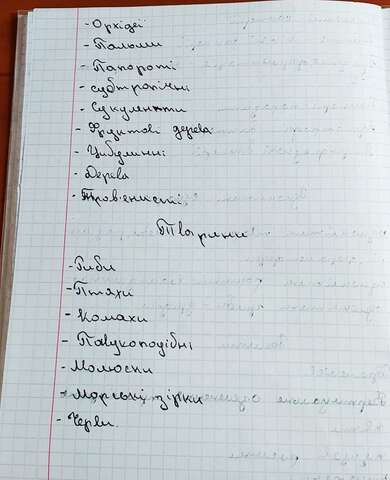 - Орхідеї
- Пальми
- Папороті
- субтропічні
- Сукуленти
- Фруктові дерева
- Цибулинні
- Дерева
- Трав'енисті
Тварини
- Риби
- Птахи
- Комахи
- Павукоподібні
- Молюски
- Морські зірки
- Черви.